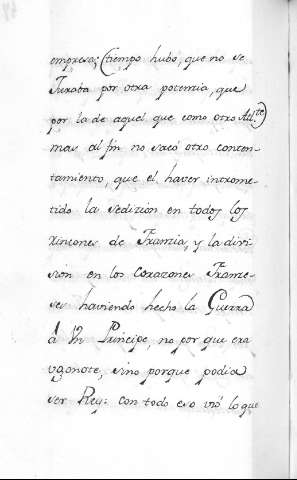 empresa; (tiempo hubo, que no se
Juxaba por otra potencia, que
por la de aquel que como otro Att.te)
mas al fin no sacó otro conten-
tamiento, que el haver intxome-
tido la Sedizion en todos los
xincones de Francia, y la divi-
sion en los Corazones France-
ses haviendo hecho la Guerra
à Vn Principe, no por que era
vgonote, sino porque podia
ser Rey: con todo eso vió lo que